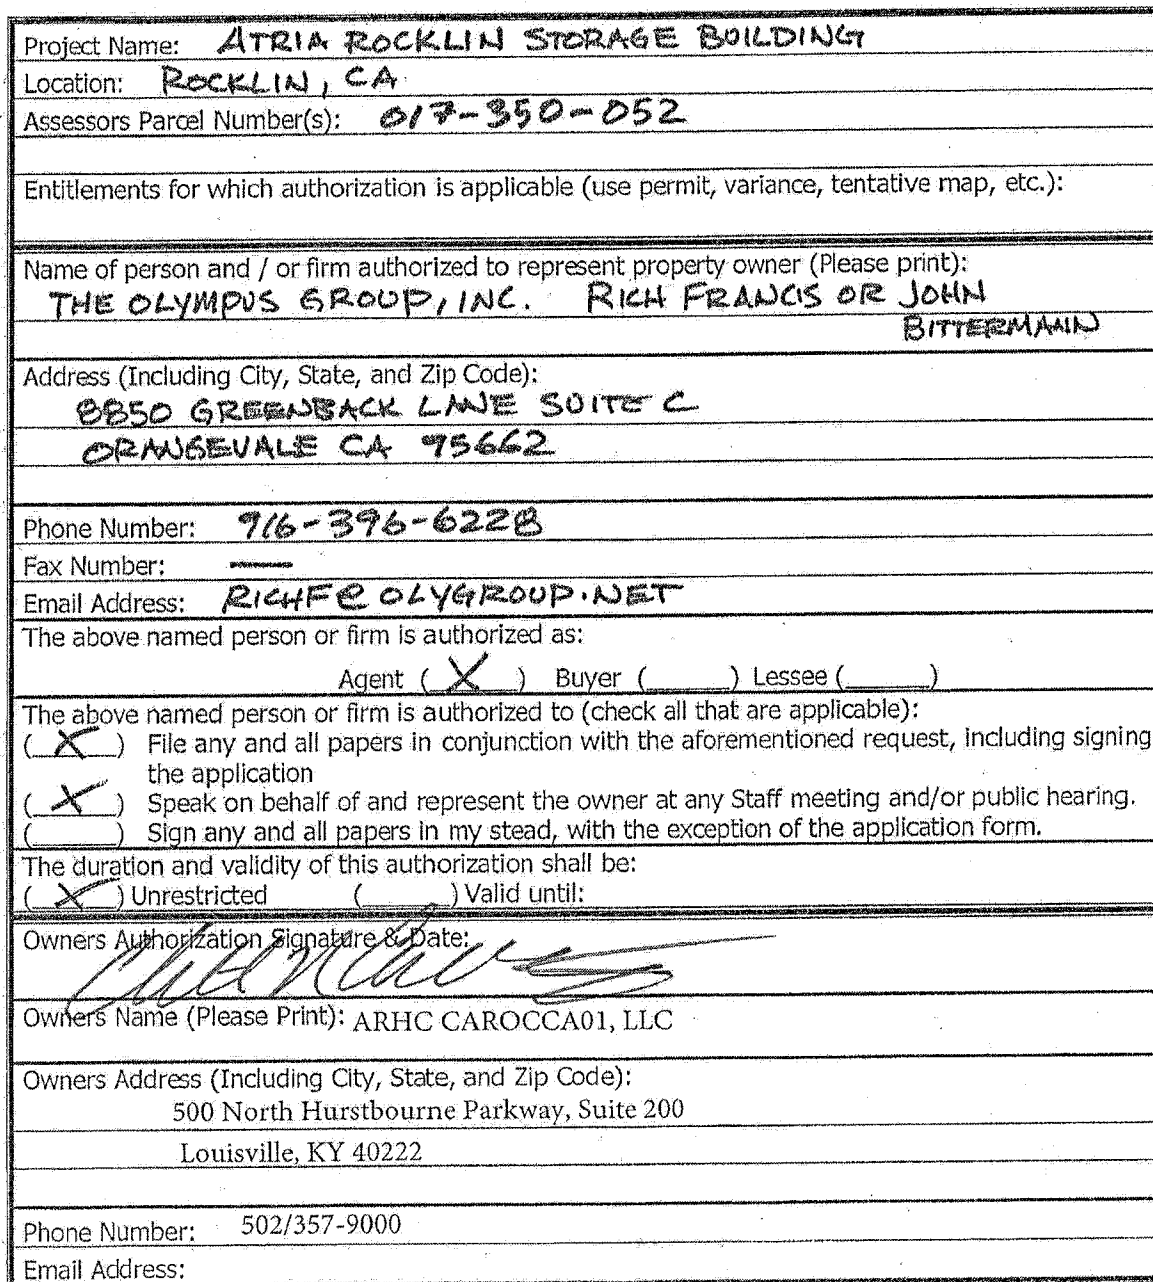 Project Name: ATRIA ROCKLIN STORAGE BUILDING
Location: ROCKLIN, CA
Assessors Parcel Number(s): 017-350-052
Entitlements for which authorization is applicable (use permit, variance, tentative map, etc.):
Name of person and / or firm authorized to represent property owner (Please print):
THE OLYMPUS GROUP, INC. RICH FRANCIS OR JOHN
BITTERMANN
Address (Including City, State, and Zip Code):
8850 GREENBACK LANE SUITE C
ORANGEVALE CA 95662
Phone Number: 916-396-6228
Fax Number: —
Email Address: RICHF@OLYGROUP.NET
The above named person or firm is authorized as:
Agent ( X ) Buyer ( ) Lessee ( )
The above named person or firm is authorized to (check all that are applicable):
( X ) File any and all papers in conjunction with the aforementioned request, including signing
the application
( X ) Speak on behalf of and represent the owner at any Staff meeting and/or public hearing.
( ) Sign any and all papers in my stead, with the exception of the application form.
The duration and validity of this authorization shall be:
( X ) Unrestricted ( ) Valid until:
Owners Authorization Signature & Date:
Owners Name (Please Print): ARHC CAROCCA01, LLC
Owners Address (Including City, State, and Zip Code):
500 North Hurstbourne Parkway, Suite 200
Louisville, KY 40222
Phone Number: 502/357-9000
Email Address: